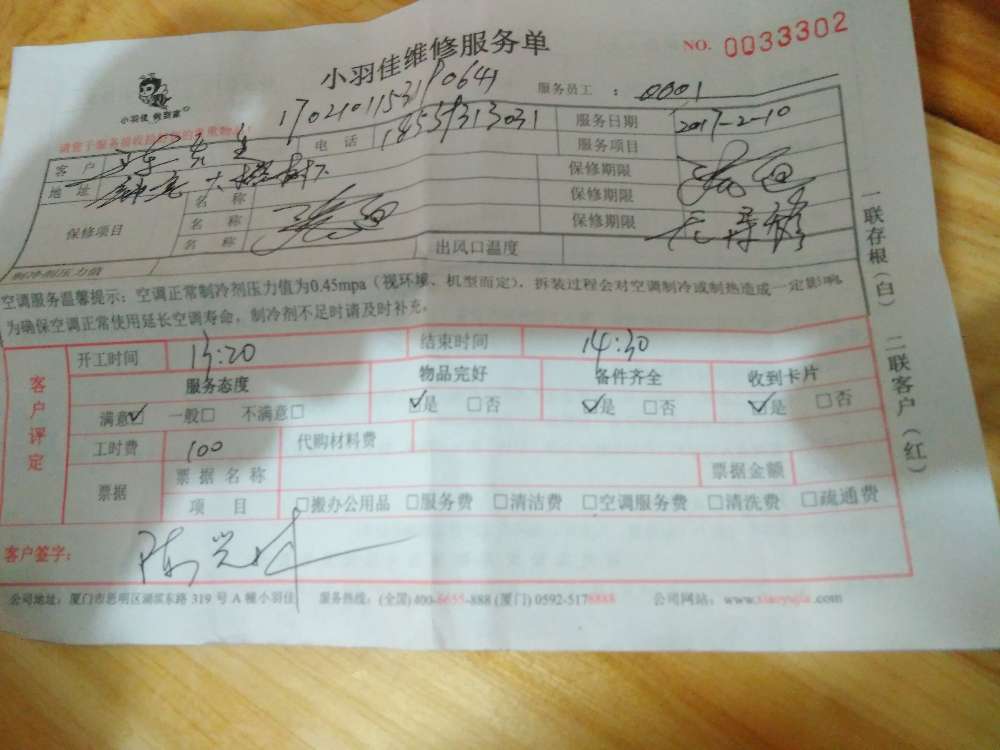 小羽佳维修服务单
NO. 0033302
小羽佳 俐到家
服务员工 : 0001
客户 电话 服务日期 2017-2-10
服务项目
地址 保修期限
保修项目 名称 保修期限
名称 保修期限
名称
制冷剂压力值 出风口温度
空调服务温馨提示：空调正常制冷剂压力值为0.45mpa（视环境、机型而定），拆装过程会对空调制冷或制热造成一定影响，
为确保空调正常使用延长空调寿命，制冷剂不足时请及时补充。
客户评定
开工时间 13:20 结束时间 14:30
服务态度 物品完好 备件齐全 收到卡片
满意☑ 一般□ 不满意□ ☑是 □否 ☑是 □否 ☑是 □否
工时费 100 代购材料费
票据 票据名称 票据金额
项目 □搬办公用品 □服务费 □清洁费 □空调服务费 □清洗费 □疏通费
客户签字：
公司地址：厦门市思明区湖滨东路 319 号 A 幢小羽佳 服务热线：(全国)400-6655-888 (厦门) 0592-5178888 公司网站：www.xiaoyujia.com
一联存根（白） 二联客户（红）